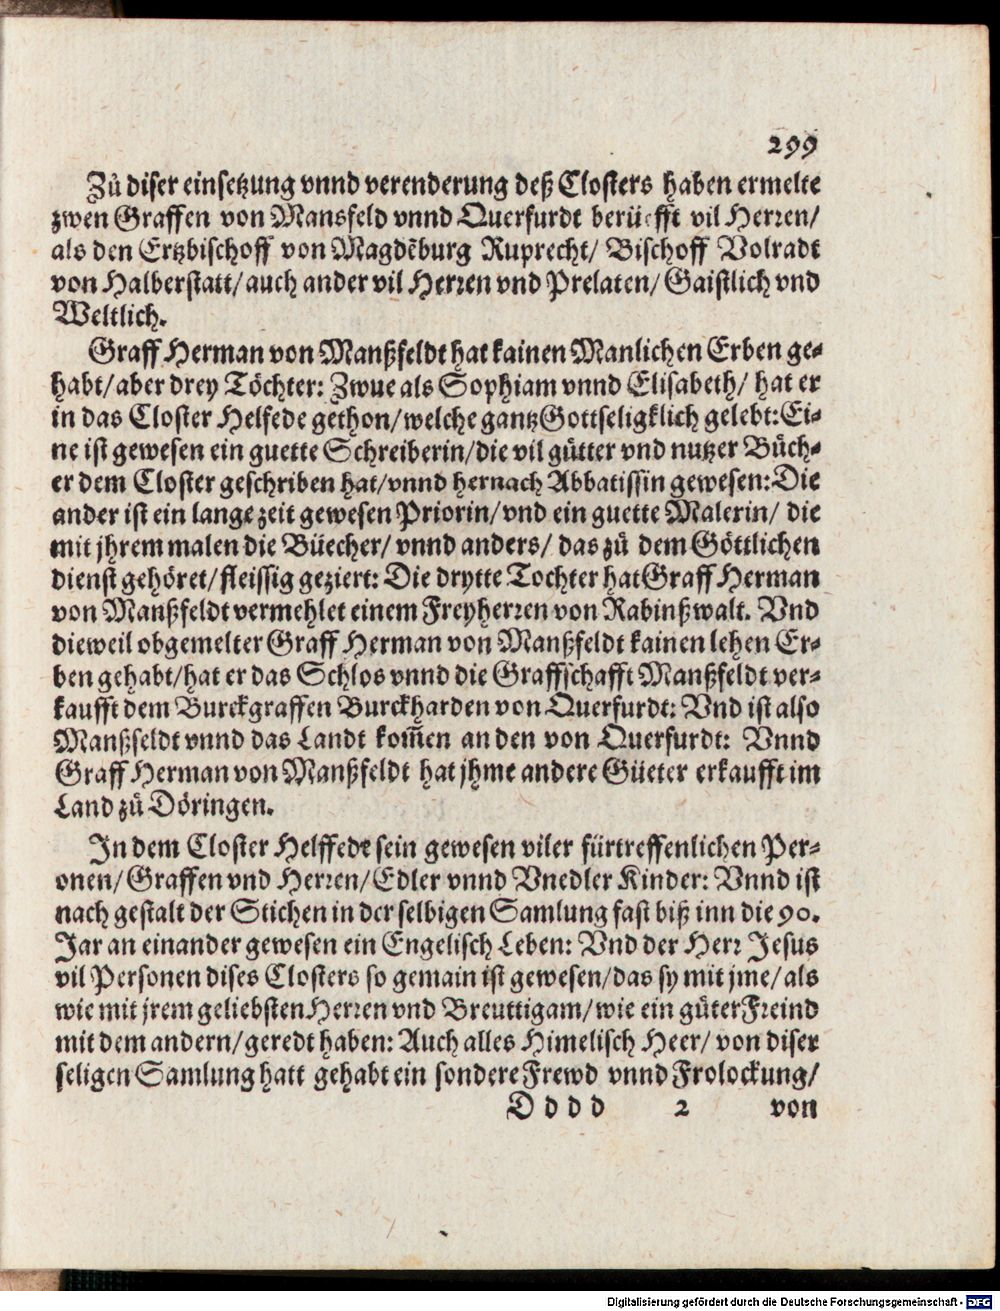 299
Zů diser einsetzung vnnd verenderung deß Closters haben ermelte
zwen Graffen von Mansfeld vnnd Querfurdt berüefft vil Herren/
als den Ertzbischoff von Magdēburg Ruprecht/ Bischoff Volradt
von Halberstatt/ auch ander vil Herren vnd Prelaten/ Gaistlich vnd
Weltlich.
Graff Herman von Manßfeldt hat kainen Manlichen Erben ge-
habt/ aber drey Töchter: Zwue als Sophiam vnnd Elisabeth/ hat er
in das Closter Helfede gethon/ welche gantz Gottseligklich gelebt: Ei-
ne ist gewesen ein guette Schreiberin/ die vil gůtter vnd nutzer Büch-
er dem Closter geschriben hat/ vnnd hernach Abbatissin gewesen: Die
ander ist ein lange zeit gewesen Priorin/ vnd ein guette Malerin/ die
mit jhrem malen die Büecher/ vnnd anders/ das zů dem Göttlichen
dienst gehöret/ fleissig geziert: Die drytte Tochter hat Graff Herman
von Manßfeldt vermehlet einem Freyherren von Rabinßwalt. Vnd
dieweil obgemelter Graff Herman von Manßfeldt kainen lehen Er-
ben gehabt/ hat er das Schlos vnnd die Graffschafft Manßfeldt ver-
kaufft dem Burckgraffen Burckharden von Querfurdt: Vnd ist also
Manßfeldt vnnd das Landt kom̄en an den von Querfurdt: Vnnd
Graff Herman von Manßfeldt hat jhme andere Güeter erkaufft im
Land zů Döringen.
In dem Closter Helffede sein gewesen viler fürtreffenlichen Per-
onen/ Graffen vnd Herren/ Edler vnnd Vnedler Kinder: Vnnd ist
nach gestalt der Stichen in der selbigen Samlung fast biß inn die 90.
Jar an einander gewesen ein Engelisch Leben: Vnd der Herr Jesus
vil Personen dises Closters so gemain ist gewesen/ das sy mit jme/ als
wie mit jrem geliebsten Herren vnd Breuttigam/ wie ein gůter Freind
mit dem andern/ geredt haben: Auch alles Himelisch Heer/ von diser
seligen Samlung hatt gehabt ein sondere Frewd vnnd Frolockung/
Dddd 2 von
Digitalisierung gefördert durch die Deutsche Forschungsgemeinschaft - DFG